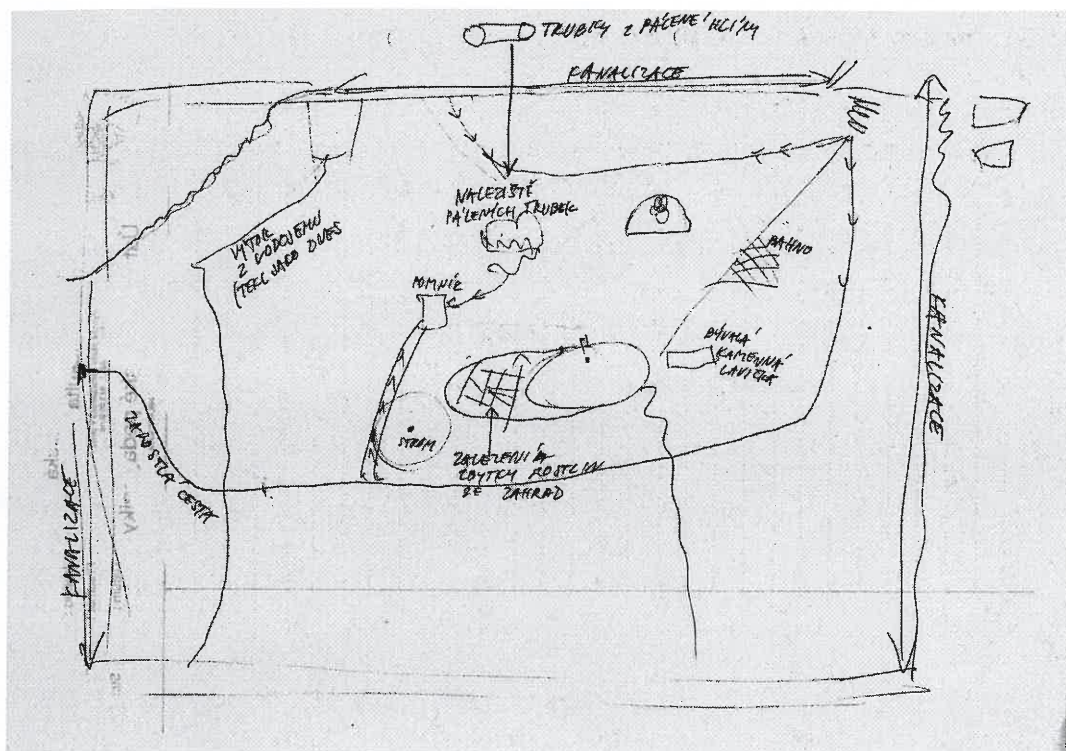 TRUBKY Z PÁLENÉ HLÍNY
KANALIZACE
NALEZIŠTĚ
PÁLENÝCH TRUBEK
VÝTOK
Z VODOJEMU
(TEKL JAKO DNES
POMNÍK
BAHNO
BÝVALÁ
KAMENNÁ
LAVIČKA
KANALIZACE
STROM
ZAROSTLÁ CESTA
ZBYTKY ROSTLIN
ZE ZAHRAD
KANALIZACE